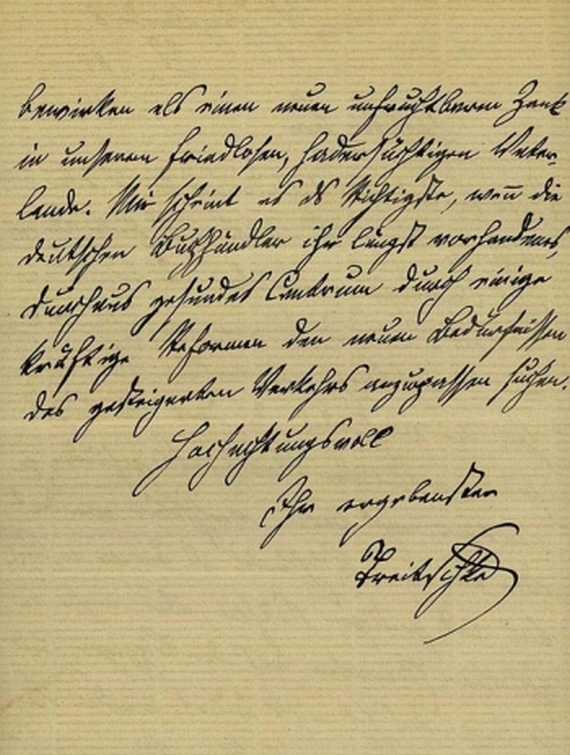 bewirken als einen neuen unfruchtbaren Zank
in unserem friedlosen, hadersüchtigen Vater-
lande. Mir scheint es ds Richtigste, wenn die
deutschen Buchhändler ihr längst vorhandenes,
durchaus gesundes Centrum durch einige
kräftige Reformen den neuen Bedürfnissen
des gesteigerten Verkehrs anzupassen suchen.
Hochachtungsvoll
Ihr ergebenster
Treitschke